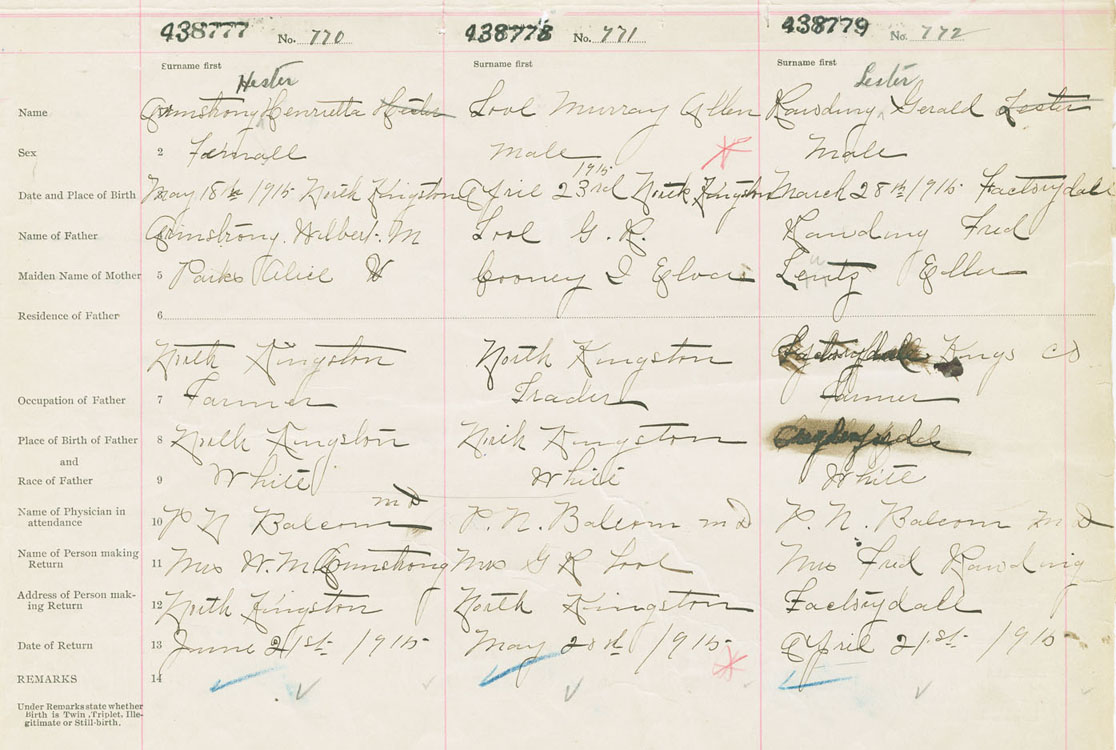 438777 No. 770 438778 No. 771 438779 No. 772
Surname first Surname first Surname first
Hester Lester
Name Armstrong Henrietta Hester Lool Murray Allen Rawding Gerald Lester
Sex 2 Femall Male Male
1915
Date and Place of Birth May 18th 1915 North Kingston April 23rd North Kingston March 28th 1915 Factorydale
Name of Father Armstrong. Wilbert. M Lool G. R. Rawding Fred
Maiden Name of Mother 5 Parks Alice Cooney Lentz
Residence of Father 6
North Kingston North Kingston Factorydale Kings Co
Occupation of Father 7 Farmer Trader Farmer
Place of Birth of Father 8 North Kingston North Kingston
and
Race of Father 9 White White White
M D
Name of Physician in 10 P N Balcom P. N. Balcom M D P. N. Balcom M D
attendance
Name of Person making 11 Mrs W. M. Armstrong Mrs G R Lool Mrs Fred Rawding
Return
Address of Person mak- 12 North Kingston North Kingston Factorydale
ing Return
Date of Return 13 June 21st 1915 May 20th 1915 April 21st 1915
REMARKS 14
Under Remarks state whether
Birth is Twin, Triplet, Ille-
gitimate or Still-birth.